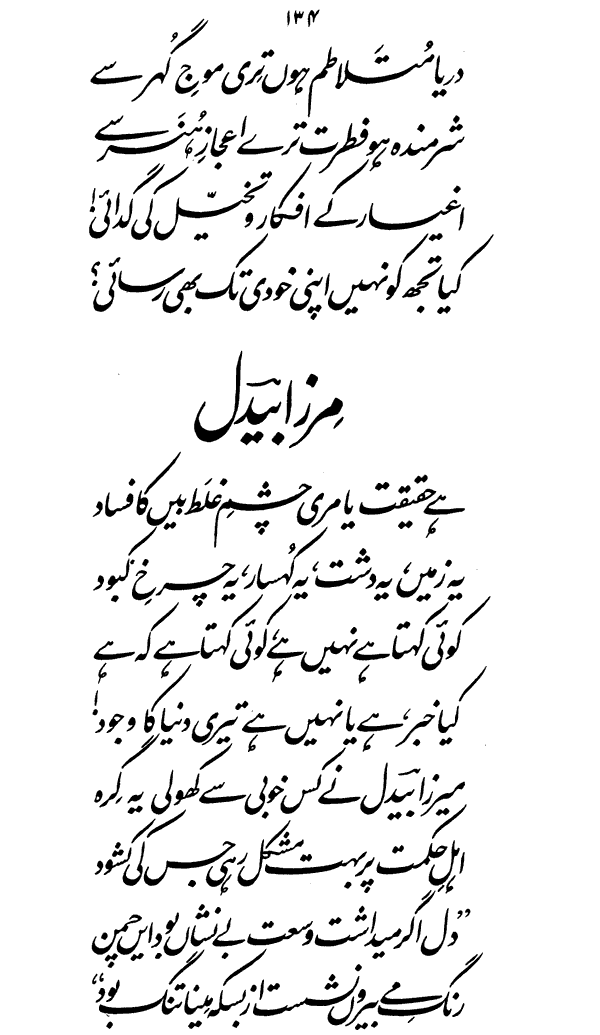 ۱۳۴
دریا مُتَلاطم ہوں تِری موجِ گُہر سے
شرمندہ ہو فطرت ترے اعجازِ ہُنَر سے
اغیار کے افکار و تخیّل کی گدائی!
کیا تجھ کو نہیں اپنی خودی تک بھی رسائی؟
مِرزا بیدلؔ
ہے حقیقت یا مری چشمِ غلَط بیں کا فساد
یہ زمیں، یہ دشت، یہ کُہسار، یہ چرخِ کبود
کوئی کہتا ہے نہیں ہے، کوئی کہتا ہے کہ ہے
کیا خبر، ہے یا نہیں ہے تیری دنیا کا وجود!
میرزا بیدلؔ نے کس خوبی سے کھولی یہ گِرہ
اہلِ حکمت پر بہت مشکل رہی جس کی کشود
”دل اگر میداشت وسعت بے نشاں بود ایں چمن
رنگِ مے بیروں نشست از بسکہ مینا تنگ بود“